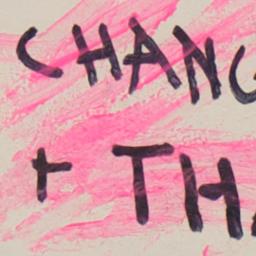 CHANG
+ THA